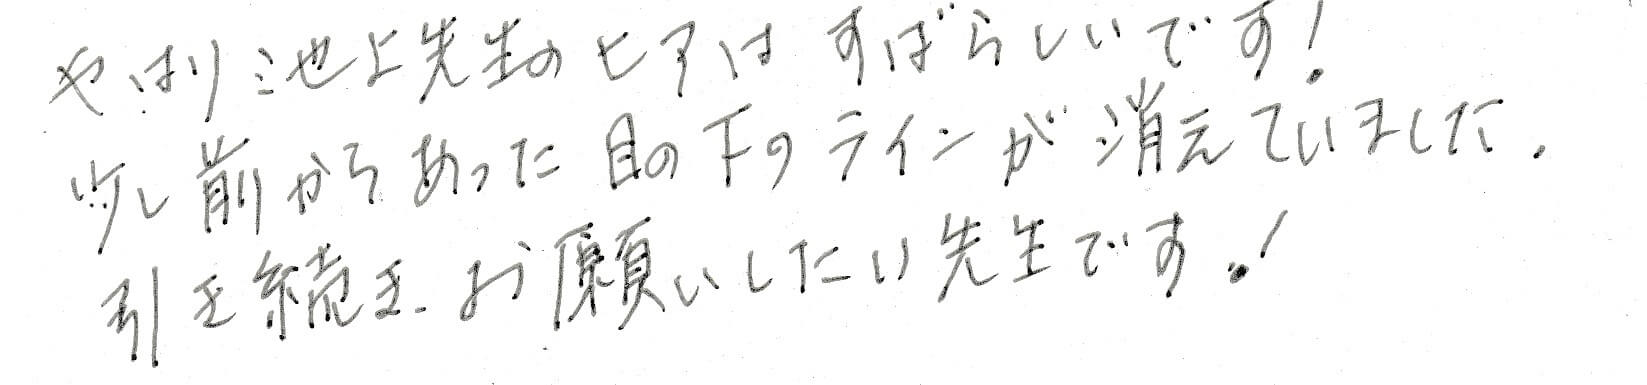 やはり池上先生のヒアはすばらしいです!
少し前からあった目の下のラインが消えていました。
引き続き、お願いしたい先生です!